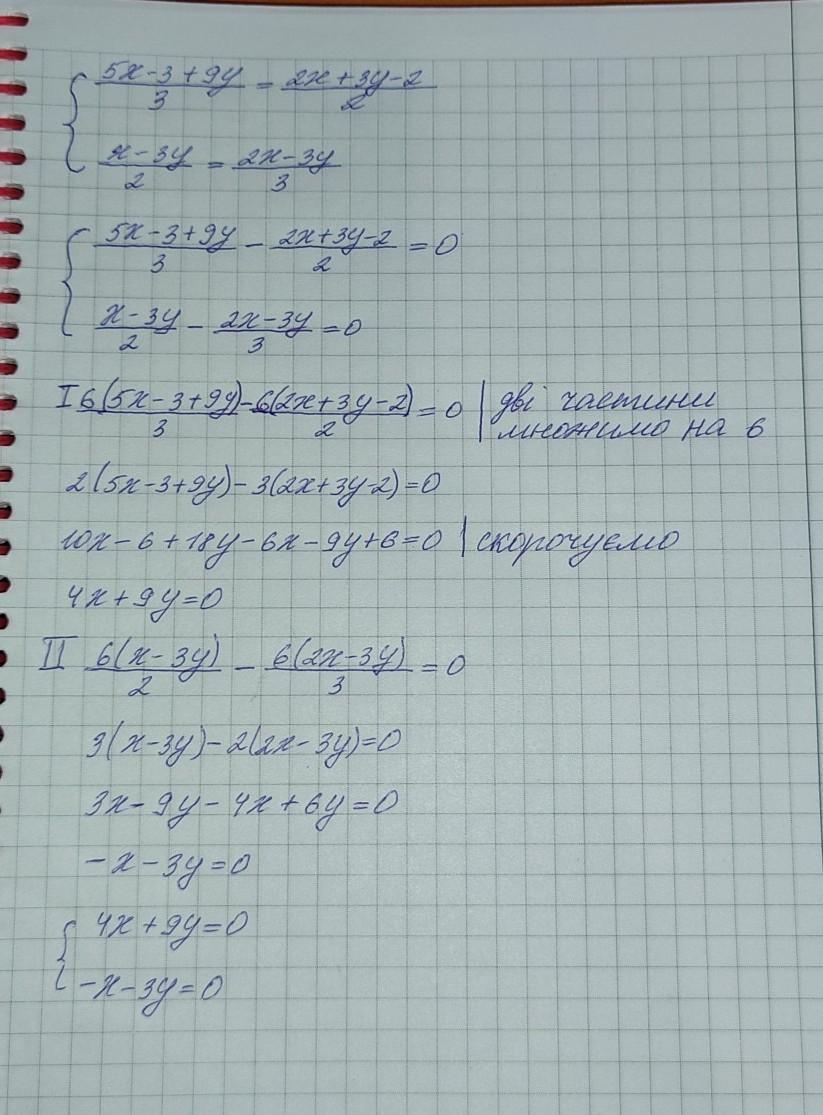 { (5x-3+9y)/3 = (2x+3y-2)/2
(x-3y)/2 = (2x-3y)/3
{ (5x-3+9y)/3 - (2x+3y-2)/2 = 0
(x-3y)/2 - (2x-3y)/3 = 0
I 6(5x-3+9y)/3 - 6(2x+3y-2)/2 = 0 | дві частини множимо на 6
2(5x-3+9y)-3(2x+3y-2)=0
10x-6+18y-6x-9y+6=0 | скорочуємо
4x+9y=0
II 6(x-3y)/2 - 6(2x-3y)/3 = 0
3(x-3y)-2(2x-3y)=0
3x-9y-4x+6y=0
-x-3y=0
{ 4x+9y=0
-x-3y=0